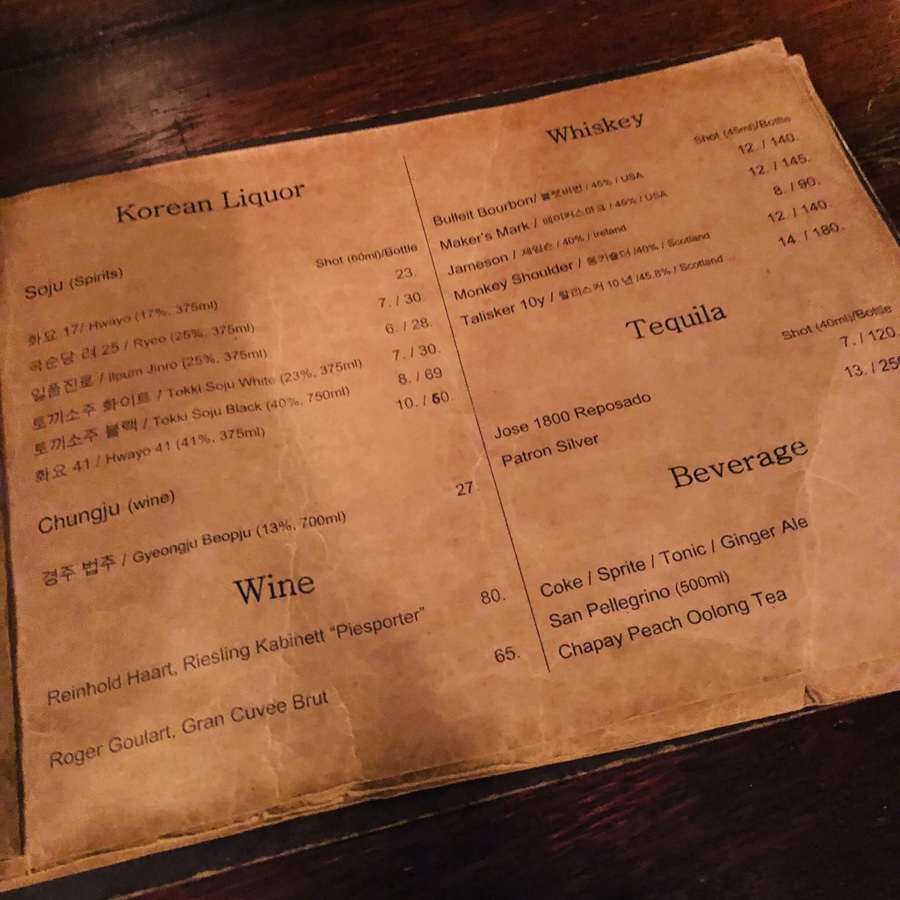 Korean Liquor
Soju (Spirits)
Shot (60ml)/Bottle
화요 17/ Hwayo (17%, 375ml) 23.
국순당 려 25 / Ryeo (25%, 375ml) 7. / 30.
일품진로 / ilpum Jinro (25%, 375ml) 6. / 28.
토끼소주 화이트 / Tokki Soju White (23%, 375ml) 7. / 30.
토끼소주 블랙 / Tokki Soju Black (40%, 750ml) 8. / 69
화요 41 / Hwayo 41 (41%, 375ml) 10. / 60.
Chungju (wine)
경주 법주 / Gyeongju Beopju (13%, 700ml) 27.
Wine
Reinhold Haart, Riesling Kabinett “Piesporter” 80.
Roger Goulart, Gran Cuvee Brut 65.
Whiskey
Shot (45ml)/Bottle
Bulleit Bourbon/ 불렛버번 / 45% / USA 12. / 140.
Maker's Mark / 메이커스마크 / 45% / USA 12. / 145.
Jameson / 제임슨 / 40% / Ireland 8. / 90.
Monkey Shoulder / 몽키숄더 /40% / Scotland 12. / 140.
Talisker 10y / 탈리스커 10 년 /45.8% / Scotland 14. / 180.
Tequila
Shot (40ml)/Bottle
Jose 1800 Reposado 7. / 120.
Patron Silver 13. / 250
Beverage
Coke / Sprite / Tonic / Ginger Ale
San Pellegrino (500ml)
Chapay Peach Oolong Tea